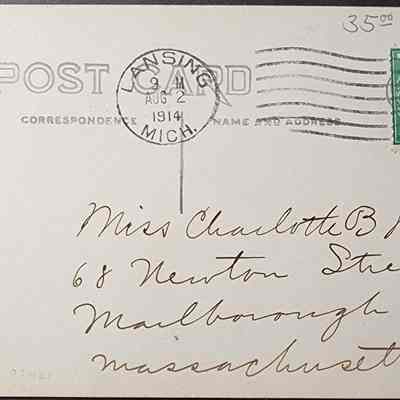 35.00
POST CARD
LANSING
AUG 2
1914
MICH.
CORRESPONDENCE NAME AND ADDRESS
Miss Charlotte B
68 Newton Stre
Marlborough
Massachuset